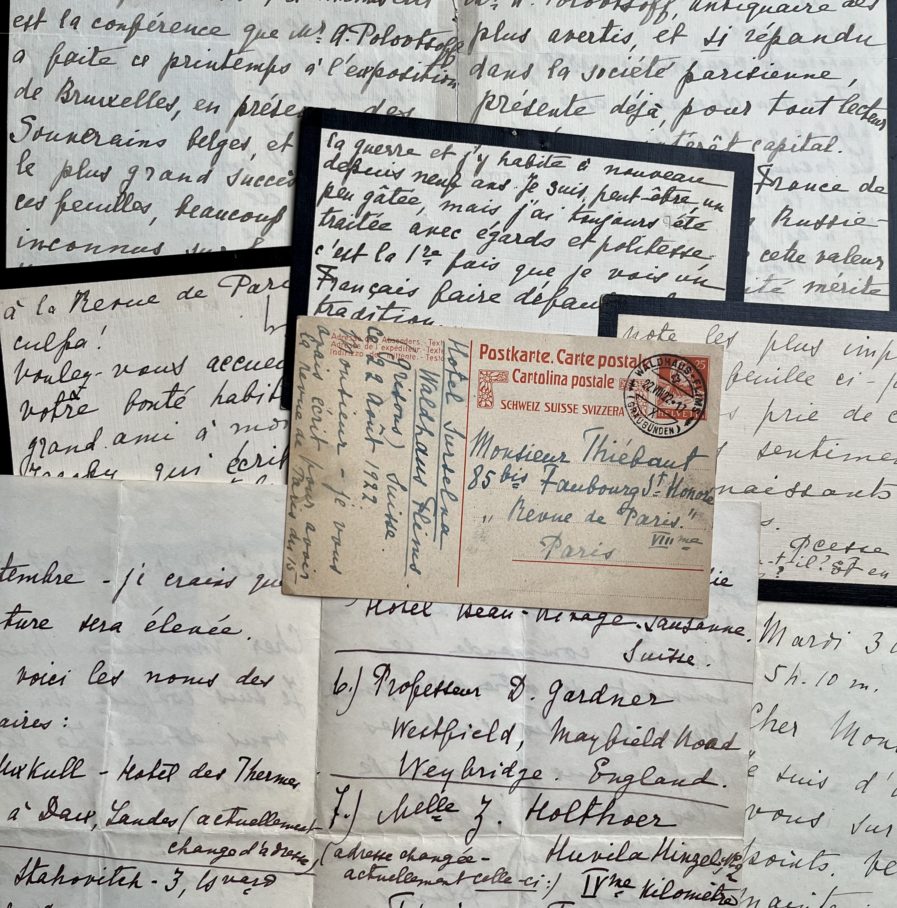 est la conférence que Mr. A. Polovtsoff
a faite ce printemps à l'exposition
de Bruxelles, en présence des
Souverains belges, et
le plus grand succès
ces feuilles, beaucoup
inconnus sur
Mr. A. Polovtsoff antiquaire des
plus avertis, et si répandu
dans la société parisienne,
présente déjà, pour tout lecteur
intérêt capital.
France de
Russie-
cette valeur
mérite
la guerre et j'y habite à nouveau
depuis neuf ans. Je suis, peut-être, un
peu gâtée, mais j'ai toujours été
traitée avec egards et politesse.
c'est la 1re fois que je vois un
Français faire défaut
tradition
à la Revue de Paris
culpa!
Voulez-vous accue
votre bonté habit
grand ami à mo
qui écrit
note les plus imp
feuille ci-j
prie de c
sentimen
naissants
Pcesse
t-il? et en
Adresse des Absenders. - Text
Adresse de l'expéditeur. - Texte
Indirizzo del mittente. - Testo
Hotel Surselva
Waldhaus Flims.
(Grisons) Suisse.
Ce 22 Août 1922.
Monsieur - je vous
avais écrit pour avoir
la revue de Paris du 15
Postkarte. Carte postale
Cartolina postale
SCHWEIZ SUISSE SVIZZERA
25
HELVETIA
WALDHAUS-FLIMS
22.VIII.22.-11
(GRAUBÜNDEN)
Monsieur Thiébaut
85 bis Faubourg St Honoré
"Revue de Paris."
VIIIme
Paris
tembre - je crains que
ture sera élevée.
voici les noms des
aires:
Hotel des Thermes
à Dax, Landes (actuellement
change d'adresse)
Stahovitch - 3,
Hotel Beau-Rivage. Lausanne.
Suisse.
6.) Professeur D. Gardner
Westfield, Maybield Road
Weybridge. England.
7.) Melle Z. Holthoer
(adresse changée -
actuellement celle-ci:)
Huvila
IVme Kilomètre
Mardi 30
5h. 10 m.
Cher Mon
je suis d'a
vous sur
points.